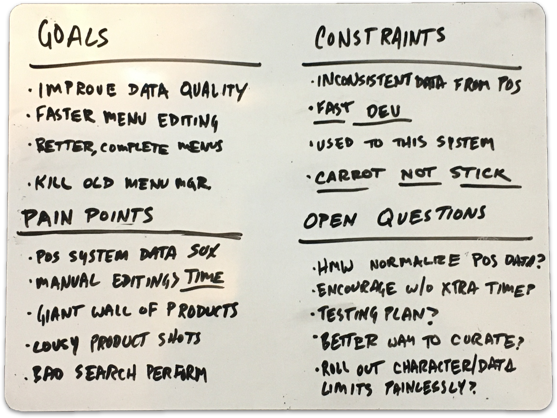 GOALS
· IMPROVE DATA QUALITY
· FASTER MENU EDITING
· BETTER, COMPLETE MENUS
· KILL OLD MENU MGR.
PAIN POINTS
· POS SYSTEM DATA SUX
· MANUAL EDITING > TIME
· GIANT WALL OF PRODUCTS
· LOUSY PRODUCT SHOTS
· BAD SEARCH PERFORM
CONSTRAINTS
· INCONSISTENT DATA FROM POS
· FAST DEV
· USED TO THIS SYSTEM
· CARROT NOT STICK
OPEN QUESTIONS
· HMW NORMALIZE POS DATA?
· ENCOURAGE W/O XTRA TIME?
· TESTING PLAN?
· BETTER WAY TO CURATE?
· ROLL OUT CHARACTER/DATA
LIMITS PAINLESSLY?